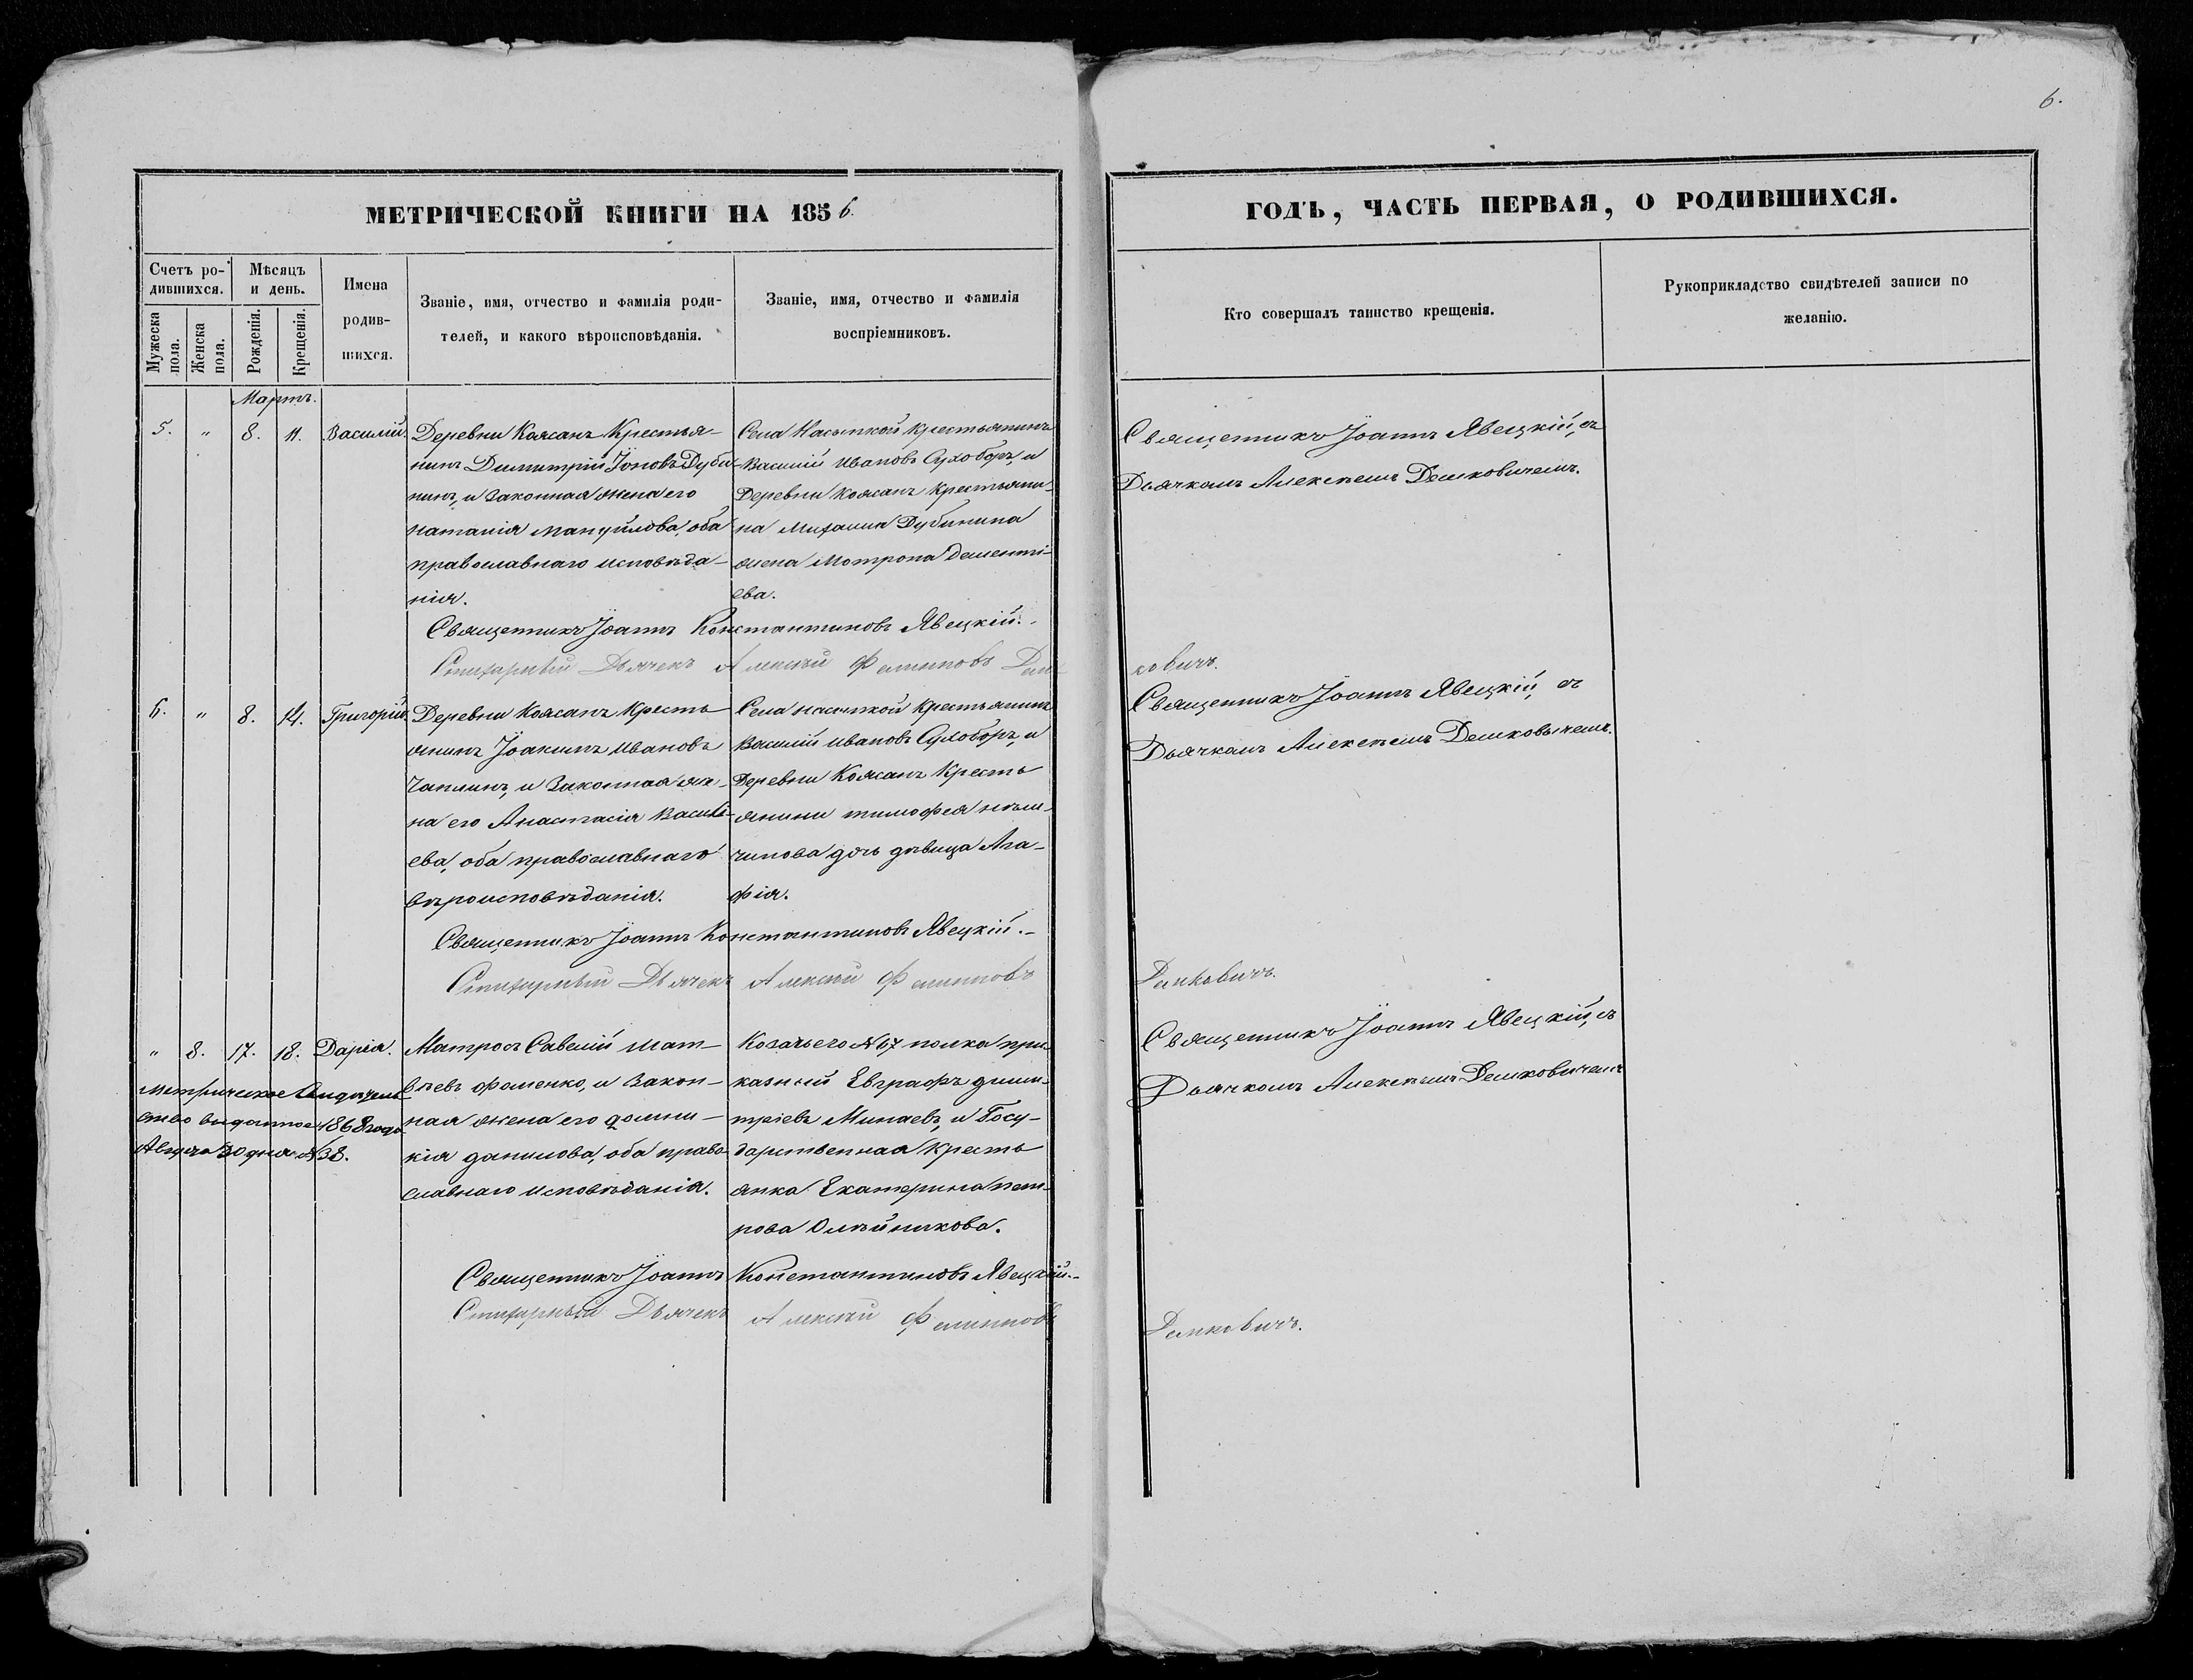 6.
МЕТРИЧЕСКОЙ КНИГИ НА 1856.
ГОДЪ, ЧАСТЬ ПЕРВАЯ, О РОДИВШИХСЯ.
Счетъ ро-
дившихся.
Мужеска пола.
Женска пола.
Мѣсяцъ
и день.
Рожденія.
Крещенія.
Имена
родив-
шихся.
Званіе, имя, отчество и фамилія роди-
телей, и какого вѣроисповѣданія.
Званіе, имя, отчество и фамилія
воспріемниковъ.
Кто совершалъ таинство крещенія.
Рукоприкладство свидѣтелей записи по
желанію.
Мартъ.
5. " 8. 11. Василій.
Деревни Коясанъ Крестья-
нинъ Димитрій Іоновъ Дуби-
нинъ, и Законная жена его
наталія мануйлова, оба
православнаго исповѣда-
нія.
Села Насыпкой крестьянинъ
Василій Ивановъ Сухоборъ, и
Деревни Коясанъ крестьяни-
на Михаила Дубинина
жена Мотрона дементі-
ева.
Священникъ Іоаннъ Явецкій, съ
Дьячкомъ Алексѣемъ Демковичемъ.
Священникъ Іоаннъ Константиновъ Явецкій.
Стихарный Дьячекъ Алексѣй Филиповъ Дем-
ковичъ.
6. " 8. 14. Григорій.
Деревни Коясанъ Кресть
янинъ Іоакимъ Ивановъ
Чаплинъ, и Законная же-
на его Анастасія Василь-
ева, оба православнаго
вѣроисповѣданія.
Села насыпкой Крестьянинъ
Василій Ивановъ Сухоборъ, и
Деревни Коясанъ Кресть
янина тимофея
дочь дѣвица Ага-
фія.
Священникъ Іоаннъ Явецкій, съ
Дьячкомъ Алексѣемъ Демковичемъ.
Священникъ Іоаннъ Константиновъ Явецкій.
Стихарный Дьячекъ Алексѣй Филиповъ
Демковичъ.
" 8. 17. 18. Дарія.
Метрическое Свидѣтель
ство выданное 1868 года
Августа 30 дня № 38.
Матросъ Савелій Мат-
вѣевъ фоменко, и Закон-
ная жена его домни-
кія данилова, оба право
славнаго исповѣданія.
Козачьего № 67 полка при-
казный Евграфъ дими-
тріевъ Минаевъ, и Госу-
дарственная Кресть
янка Екатерина пет-
рова Олѣйникова.
Священникъ Іоаннъ Явецкій, съ
Дьячкомъ Алексѣемъ Демковичемъ
Священникъ Іоаннъ Константиновъ Явецкій.
Стихарный Дьячекъ Алексѣй Филиповъ
Демковичъ.